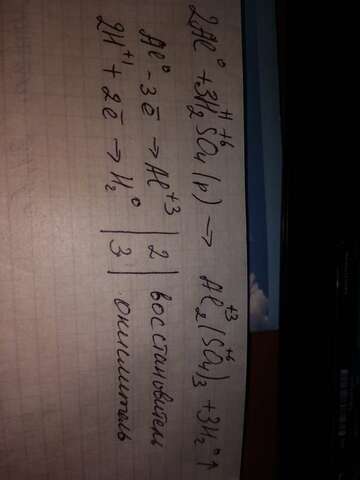 2Al⁰ + 3H₂⁺¹S⁺⁶O₄(р) → Al₂⁺³(S⁺⁶O₄)₃ + 3H₂⁰↑
Al⁰ - 3ē → Al⁺³ | 2 | восстановитель
2H⁺¹ + 2ē → H₂⁰ | 3 | окислитель